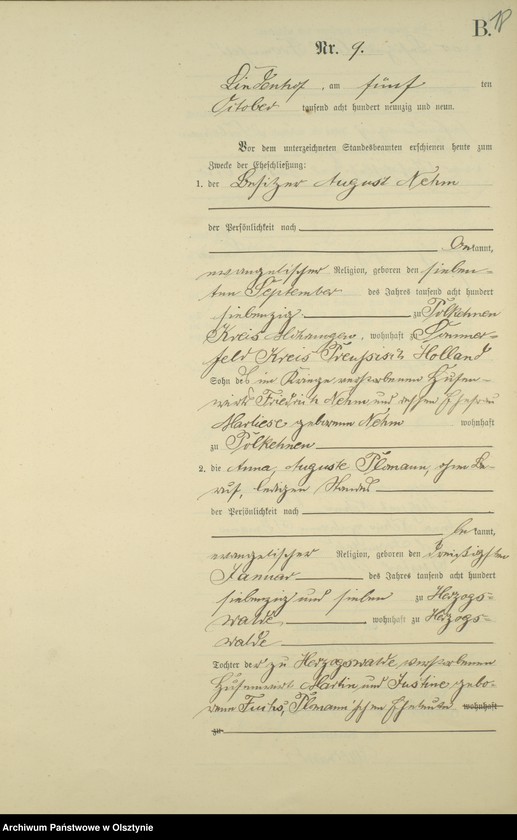 B. 18
Nr. 9.
Lindenhof, am fünf ten
October tausend acht hundert neunzig und neun.
Vor dem unterzeichneten Standesbeamten erschienen heute zum
Zwecke der Eheschließung:
1. der Besitzer August Nehm
der Persönlichkeit nach
be kannt,
evangelischer Religion, geboren den sieben-
ten September des Jahres tausend acht hundert
siebenzig zu Polkehnen
Kreis Mohrungen, wohnhaft zu
feld Kreis Preußisch Holland
Sohn des im Kriege verstorbenen Hufen-
wirts Friedrich Nehm und dessen Ehefrau
Marliese geborenen Nehm wohnhaft
zu Polkehnen
2. die Anna, Auguste Plomann, ohne Be-
ruf, ledigen Standes
der Persönlichkeit nach
be kannt,
evangelischer Religion, geboren den dreißigsten
Januar des Jahres tausend acht hundert
siebenzig und sieben zu Herzogs-
walde wohnhaft zu Herzogs-
walde
Tochter der zu Herzogswalde verstorbenen
Hufenwirt Martin und Justine gebo-
rene Fuchs, Plomann'schen Eheleute wohnhaft
zu
Archiwum Państwowe w Olsztynie